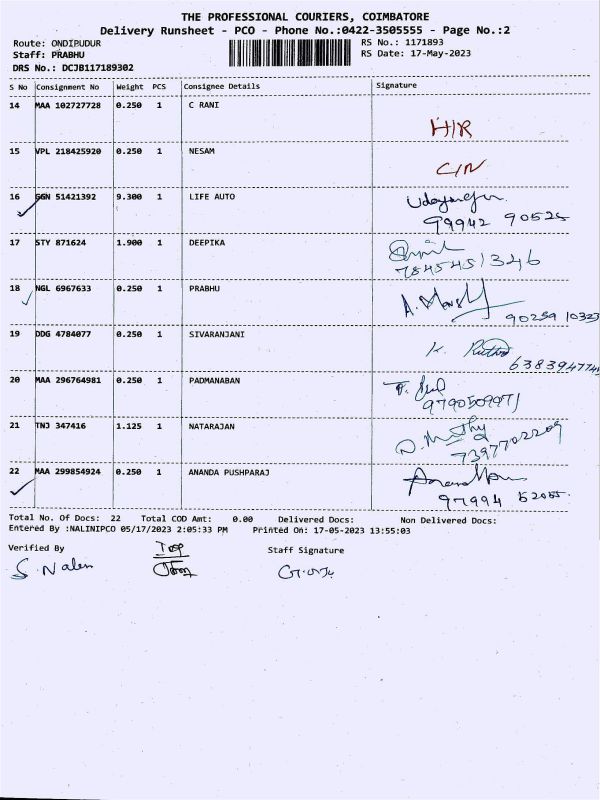 THE PROFESSIONAL COURIERS, COIMBATORE
Delivery Runsheet - PCO - Phone No.:0422-3505555 - Page No.:2
Route: ONDIPUDUR RS No.: 1171893
Staff: PRABHU RS Date: 17-May-2023
DRS No.: DCJB117189302
S No Consignment No Weight PCS Consignee Details Signature
14 MAA 102727728 0.250 1 C RANI
H/R
15 VPL 218425920 0.250 1 NESAM
C/N
16 GGN 51421392 9.300 1 LIFE AUTO
99942 90525
17 STY 871624 1.900 1 DEEPIKA
7845451346
18 NGL 6967633 0.250 1 PRABHU
90259 10323
19 DDG 4784077 0.250 1 SIVARANJANI
K.
6383947745
20 MAA 296764981 0.250 1 PADMANABAN
9790509971
21 TNJ 347416 1.125 1 NATARAJAN
7397702209
22 MAA 299854924 0.250 1 ANANDA PUSHPARAJ
97994 52055
Total No. Of Docs: 22 Total COD Amt: 0.00 Delivered Docs: Non Delivered Docs:
Entered By :NALINIPCO 05/17/2023 2:05:33 PM Printed On: 17-05-2023 13:55:03
Verified By Staff Signature
S. Nalin